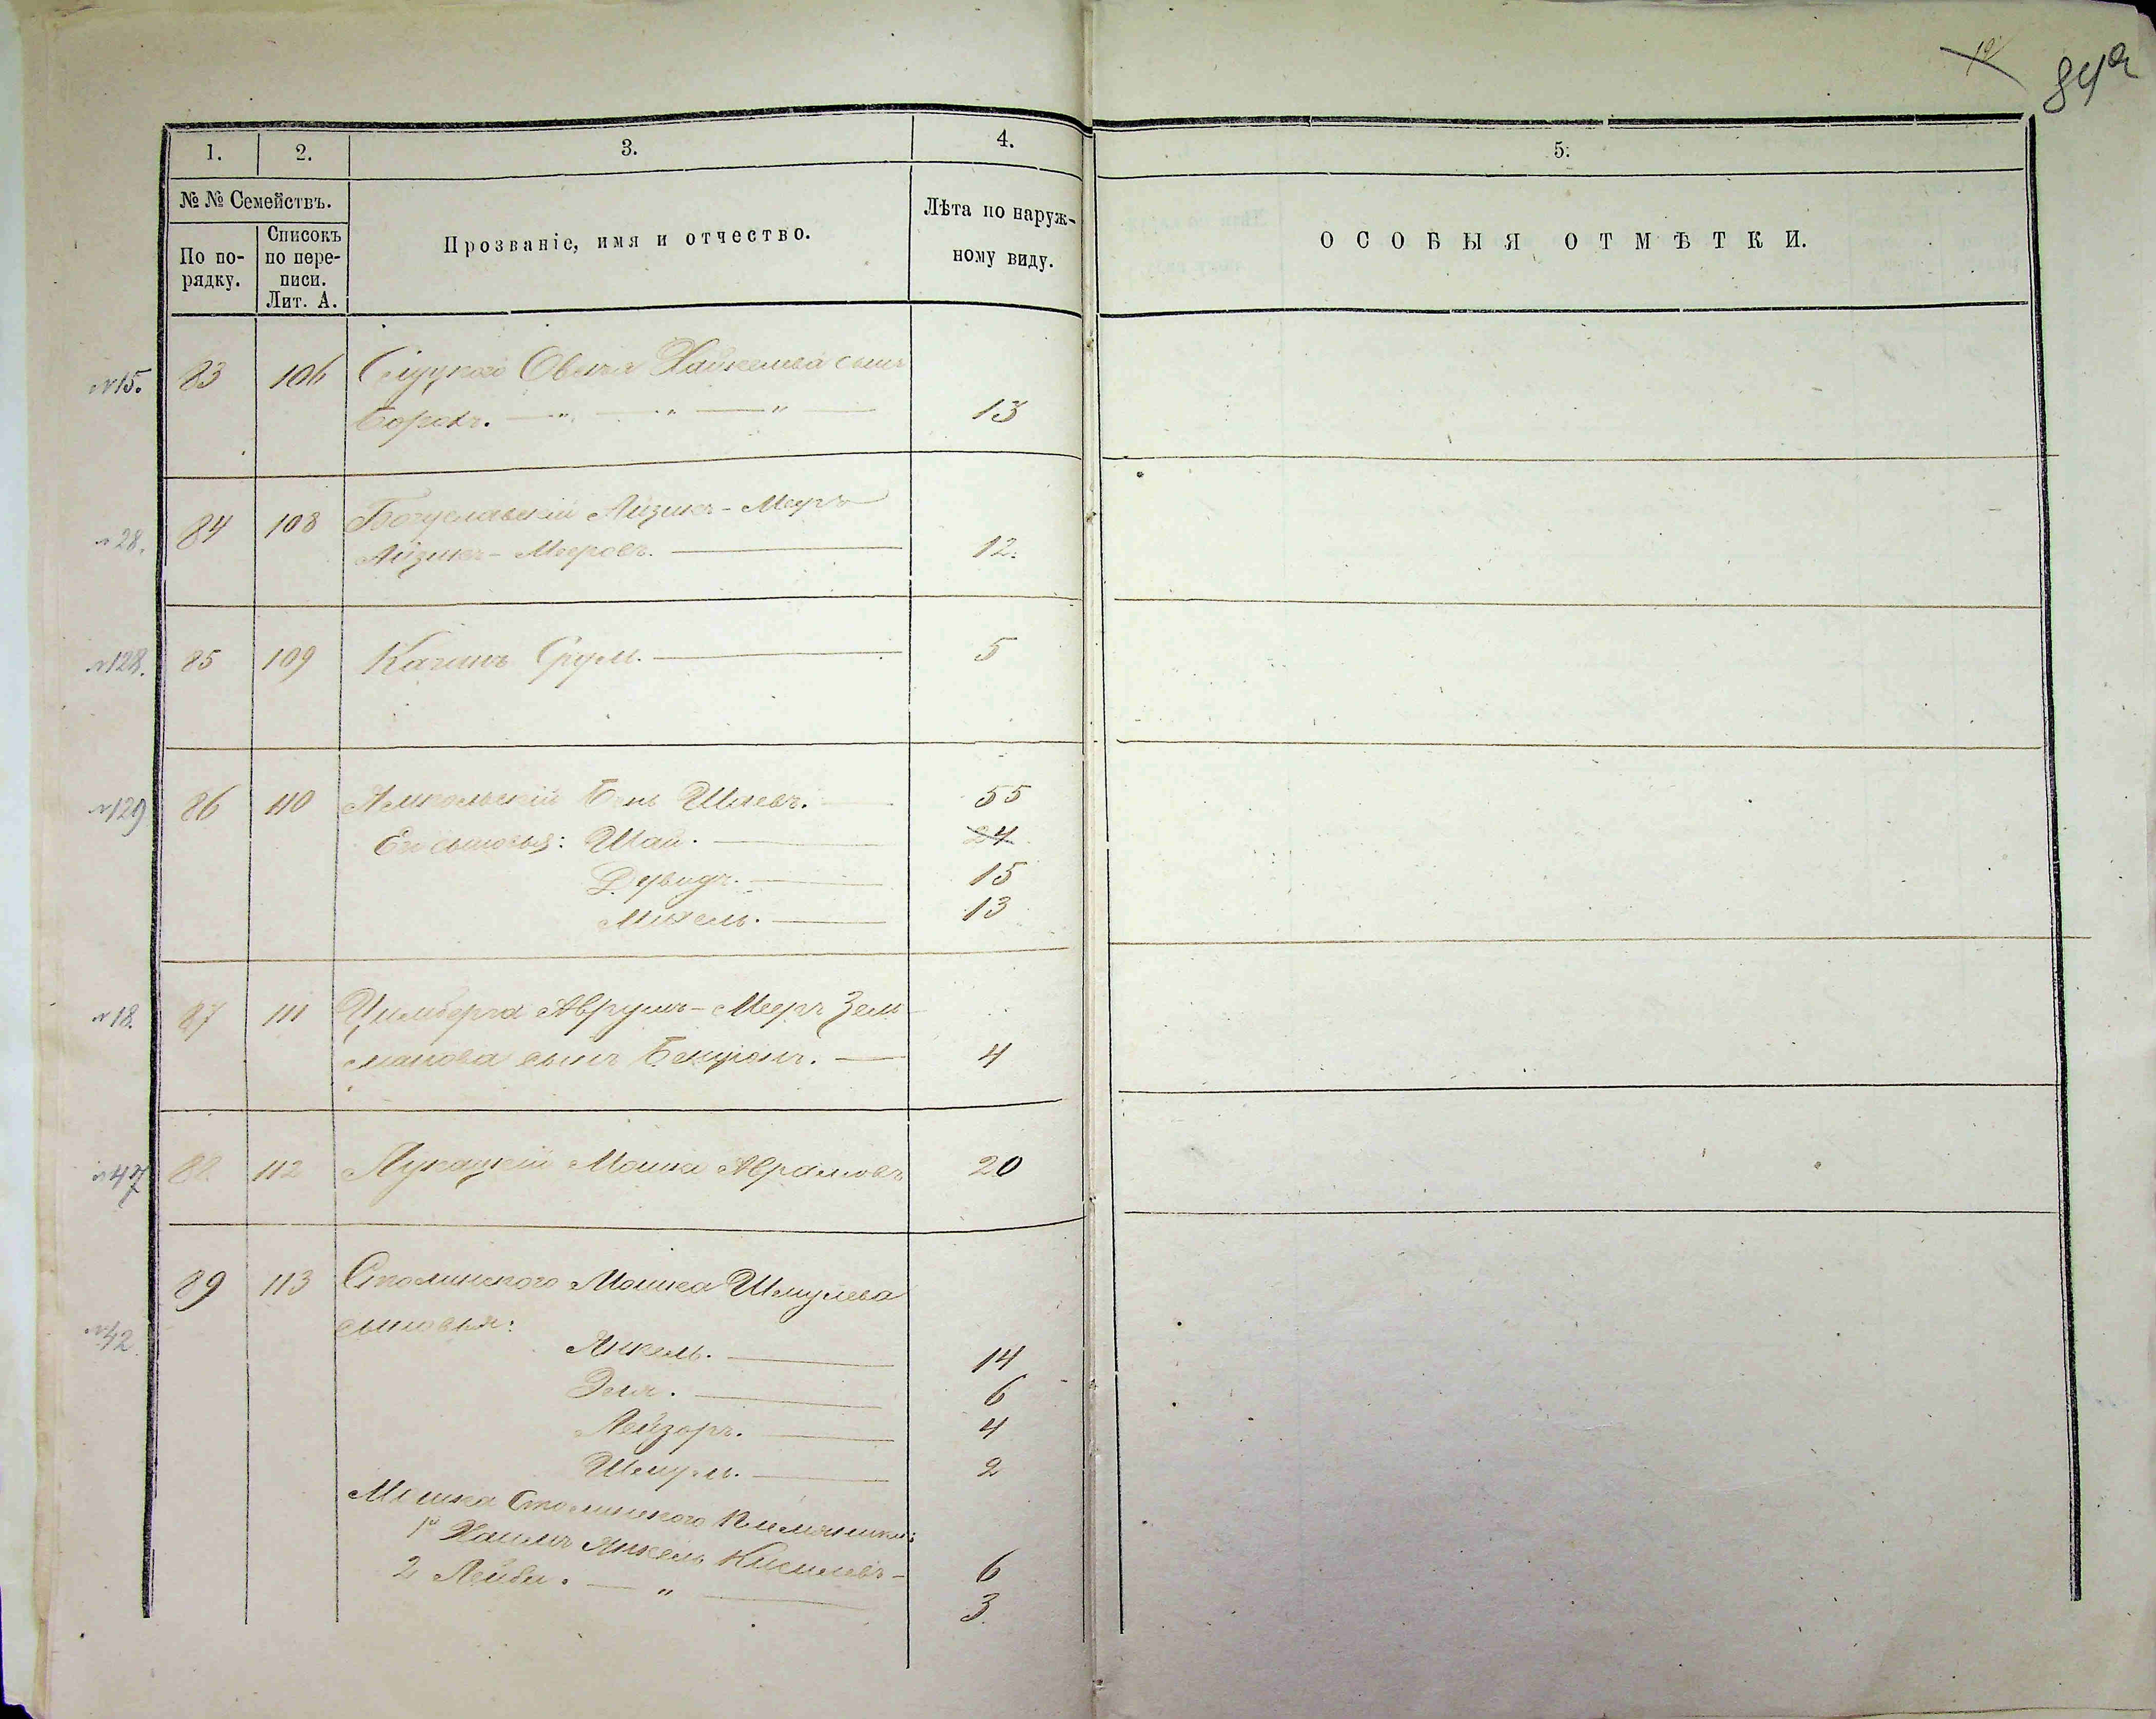 84а
1. 2. 3. 4. 5.
№ № Семействъ.
По по-
рядку.
Списокъ
по пере-
писи.
Лит. А.
Прозваніе, имя и отчество.
Лѣта по наруж-
ному виду.
ОСОБЫЯ ОТМѢТКИ.
№15. 83 106 Слуцкого Овсея Хаикелева сынъ
Борохъ. — " — " — " — 13
№28. 84 108 Богуславскій Айзикъ-Меръ
Айзикъ-Мееровъ. — 12.
№128. 85 109 Каганъ Срул. — 5
№129 86 110 Ямпольскій Бень Шаевъ. — 55
Его сыновья: Шай. — 24
Дувидъ. — 15
Михель. — 13
№18. 87 111 Цимберга Аврумъ-Мееръ Зель
манова сынъ — 4
№47 88. 112 Лукацкій Мошка Абрамовъ 20
89 113 Столинского Мошка Шмулева
№42 сыновья:
Янкель. — 14
Эля. — 6
Лейзоръ. — 4
Шмуль. — 2
Мошка Столинского племянники:
1й Хаимъ Янкель — 6
2 Лейба. — " — 3.